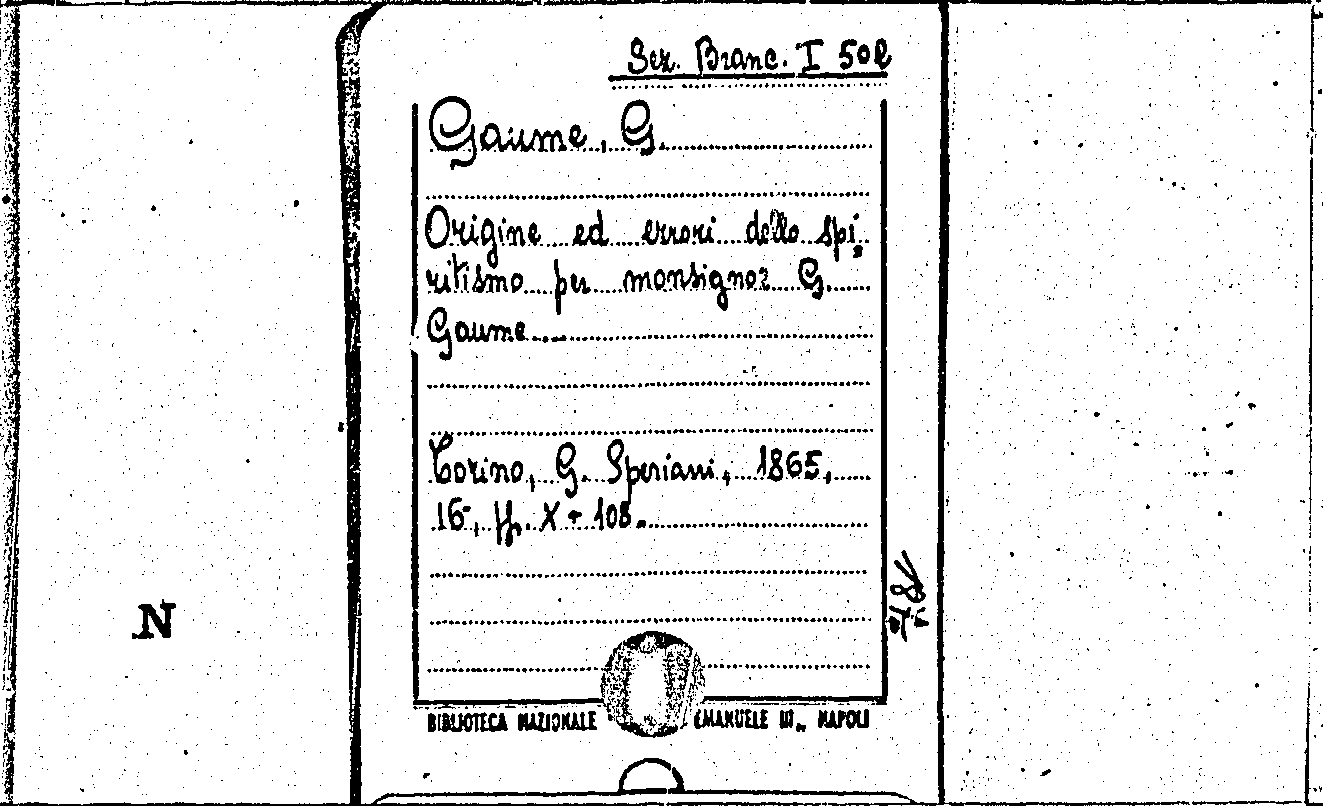 Sez. Branc. I 50 l
Gaume, G.
Origine ed errori dello spi
ritismo per monsignor G.
Gaume...
Torino, G. Speriani, 1865,
16°, pp. X + 108.
N
BIBLIOTECA NAZIONALE EMANUELE III„ NAPOLI